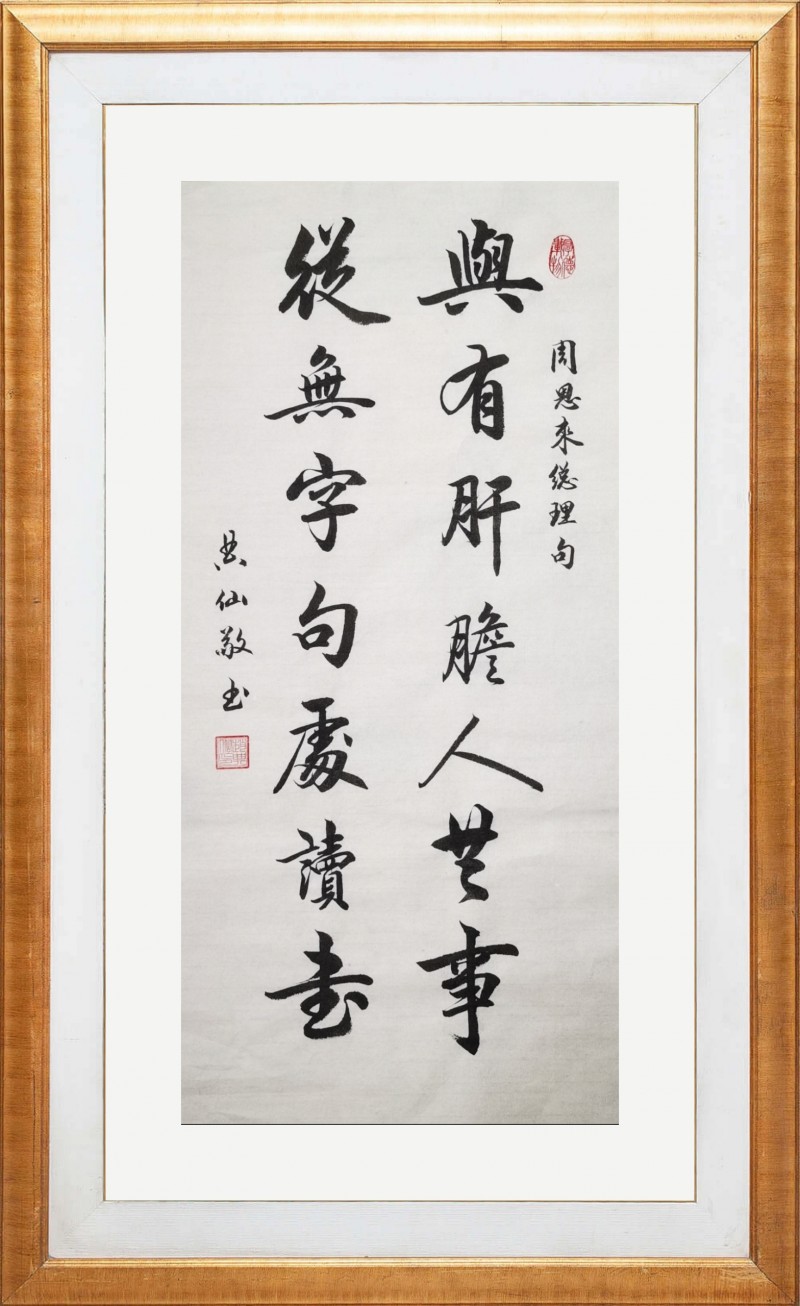 周恩来總理句
與有肝膽人共事
從無字句處讀書
仙敬书